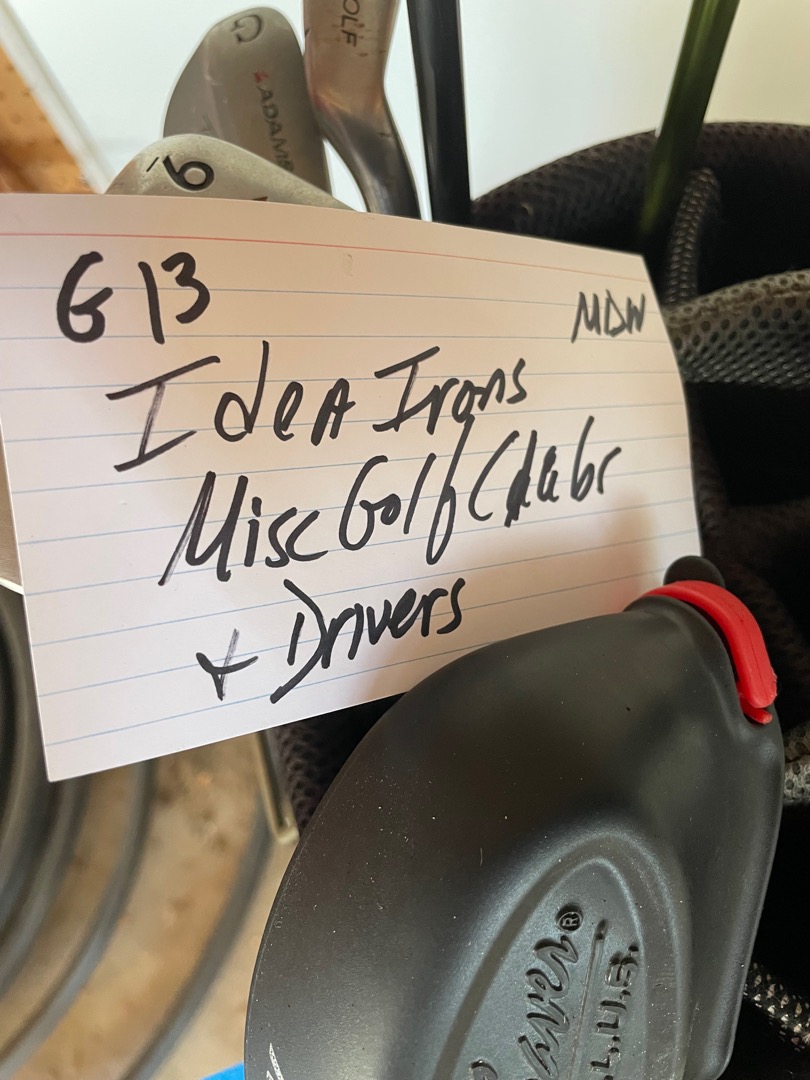 OLF
G
ADAMS
6
G 13
MDW
Idea Irons
Misc Golf Clubs
+ Drivers